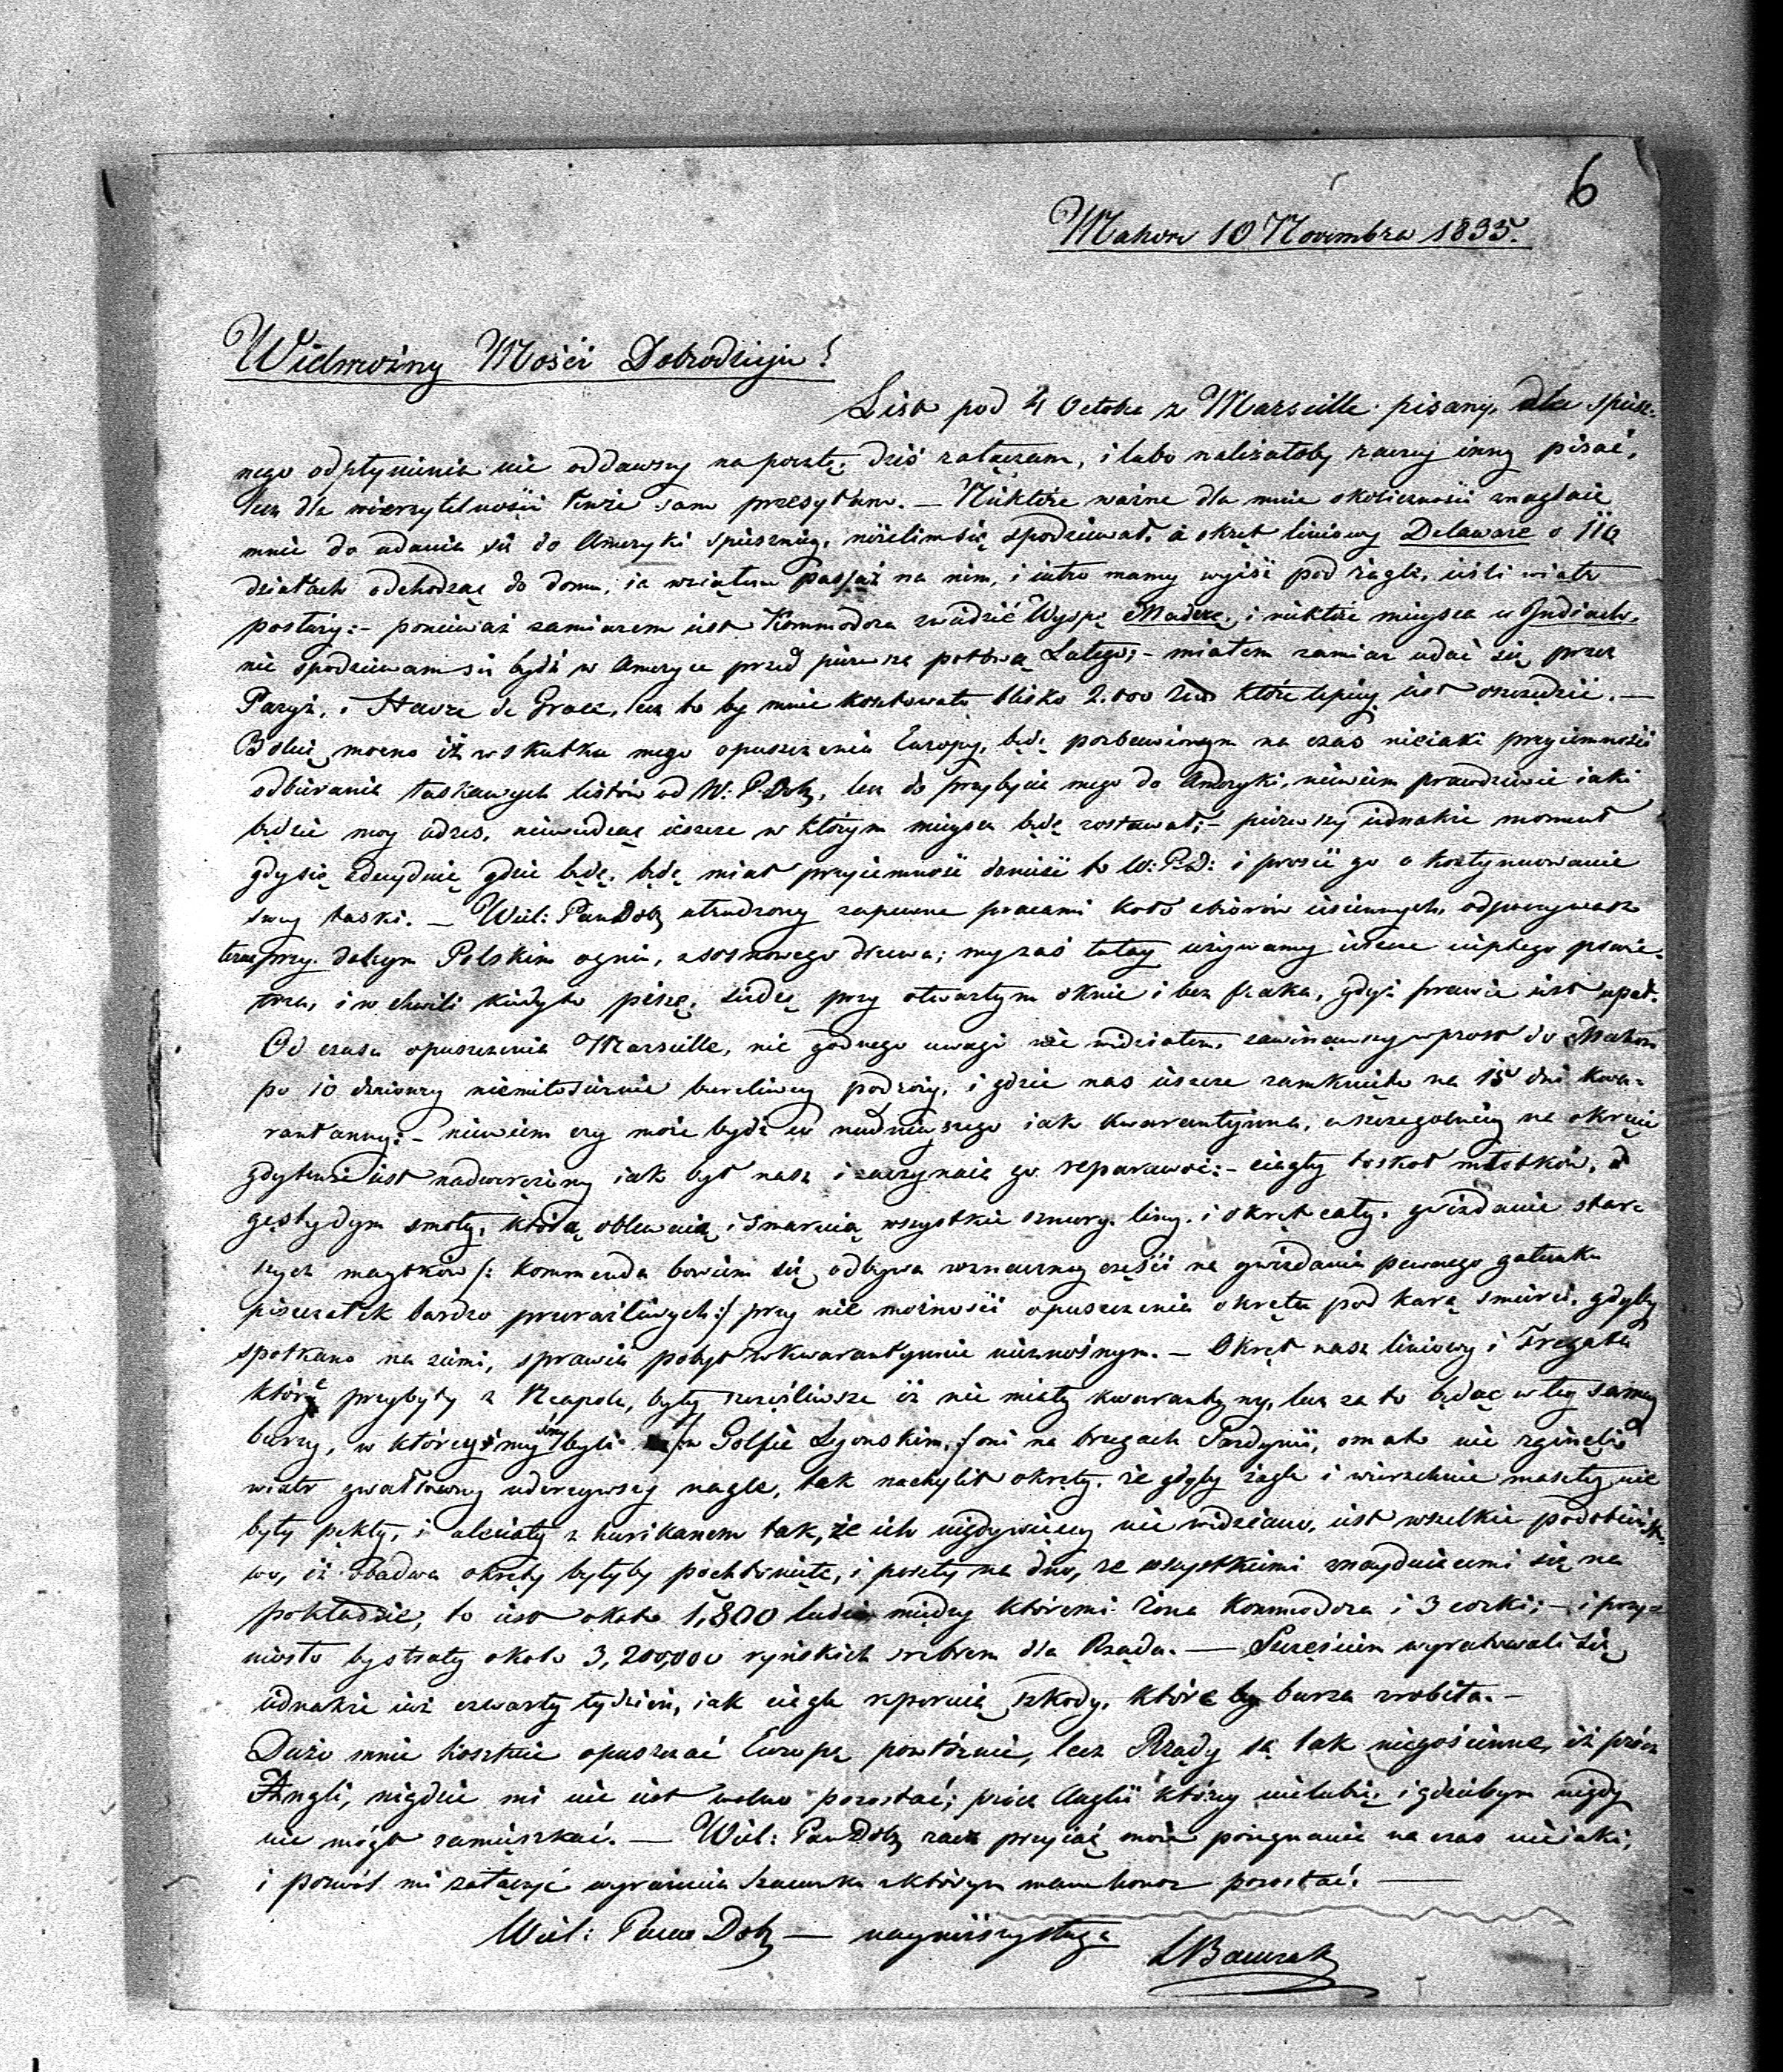 6
Mahon 10 Novembra 1833.
Wielmożny Mości Dobrodzieju!
List pod 4 Octobra z Marseille pisany, dla spiesz-
nego odpłynienia nie oddawszy na pocztę, dziś załączam, i lubo należałoby raczey inny pisać,
lecz dla wierzytelności tenże sam przesyłam. — Niektóre ważne dla mnie okoliczności znaglaią
mnie do udania się do Ameryki spieszniey, niżelim się spodziewał, a okręt liniowy Delaware o 110
działach odchodząc do domu, ia wziąłem passaż na nim, i iutro mamy wyiść pod żagle, ieśli wiatr
posłuży: — ponieważ zamiarem iest Kommodora zwiedzić Wyspę Maderę, i niektóre mieysca w Indiach,
nie spodziewam się bydź w Ameryce przed pierwszą połową Lutego; — miałem zamiar udać się przez
Paryż, i Havre de Grace, lecz to by mnie kosztowało blisko 2.000 które lepiey iest oszczędzić. —
Boleię mocno iż w skutku mego opuszczenia Europy, będę pozbawionym na czas nieiaki przyiemności
odbierania łaskawych listów od W: P. Dob, lecz do przybycia mego do Ameryki, niewiem prawdziwie iaki
będzie moy adres, niewiedząc ieszcze w którym mieyscu będę zostawał; — pierwszy iednakże moment
gdy się zdecyduię gdzie będę, będę miał przyiemność donieść to W: P. D: i prosić go o kontynuowanie
swey łaski. — Wiel: Pan Dob utrudzony zapewne pracami koło zbiorów iesiennych, odpoczywasz
teraz przy dobrym Polskim ogniu, z sosnowego drzewa; my zaś tutay używamy ieszcze ciepłego powie-
trza, i w chwili kiedy to piszę, siedzę przy otwartym oknie i bez fraka, gdyż prawie iest upał.
Od czasu opuszczenia Marseille, nic godnego uwagi nie widziałem, zawinąwszy wprost do Mahon
po 10 dniowey niemiłosiernie burzliwey podroży, i gdzie nas ieszcze zamknięto na 15 dni kwa-
rantanny: — niewiem czy może bydź co nudnieyszego iak kwarantynna, a szczegolniey na okręcie
gdy tenże iest nadwerężony iak był nasz i zaczynaią go reparować: — ciągły łoskot młotków, i
gęsty dym smoły, którą oblewaią i smaruią wszystkie sznury, liny, i okręt cały, gwizdanie star-
szych maytków /: kommenda bowiem się odbywa wznaczney części na gwizdaniu pewnego gatunku
piszczałek bardzo przeraźliwych:/ przy nie możności opuszczenia okrętu pod karą śmierci, gdyby
spotkano na ziemi, sprawia pobyt w kwarantynnie nieznośnym. — Okręt nasz liniowy i Fregata
które przybyły z Neapolu, były szczęśliwsze iż nie miały kwarantyny, lecz za to będąc w tey samey
burzy, w którey i my byli /: w Golfie Lyonskim, :/ oni na brzegach Sardynii, omało nie zginęli
wiatr gwałtowny uderzywszy nagle, tak nachylił okręty, że gdyby żagle i wierzchnie maszty nie
były pękły, i uleciały z hurikanem tak, że ich nigdy więcey nie widziano, iest wszelkie podobieńst-
wo, iż obadwa okręty byłyby pochłonięte, i poszły na dno, ze wszystkiemi znayduiącemi się na
pokładzie, to iest około 1,800 ludzi między któremi żona Kommodora i 3 corki; — i przy-
niosło by straty około 3,200,000 ryńskich srebrem dla Rządu. — Szczęściem wyratowali się
iednakże iuż czwarty tydzień, iak ciągle reperuią szkody, które burza zrobiła. —
Dużo mnie kosztuie opuszczać Europę powtórnie, lecz Rządy są tak niegościnne, iż prócz
Angli, nigdzie mi nie iest wolno pozostać; prócz Anglii którey nielubię, i gdziebym nigdy
nie mógł zamieszkać. — Wiel: Pan Dob racz przyiąć moie pożegnanie na czas nieiaki,
i pozwól mi załączyć wyrażenia szacunku z którym mam honor pozostać. —
Wiel: Pana Dob — nayniższy sługa